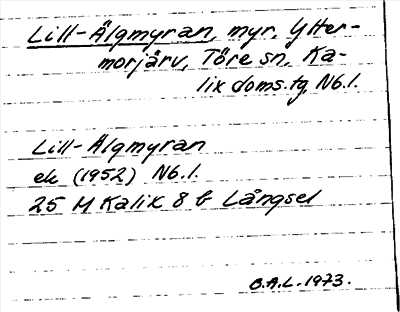 Lill-Älgmyran, myr, Ytter-
morjärv, Töre sn, Ka-
lix doms.tg Nb.l.
Lill-Älgmyran
ek (1952) Nb.l.
25 M Kalix 8 b Långsel
O.A.L. 1973.